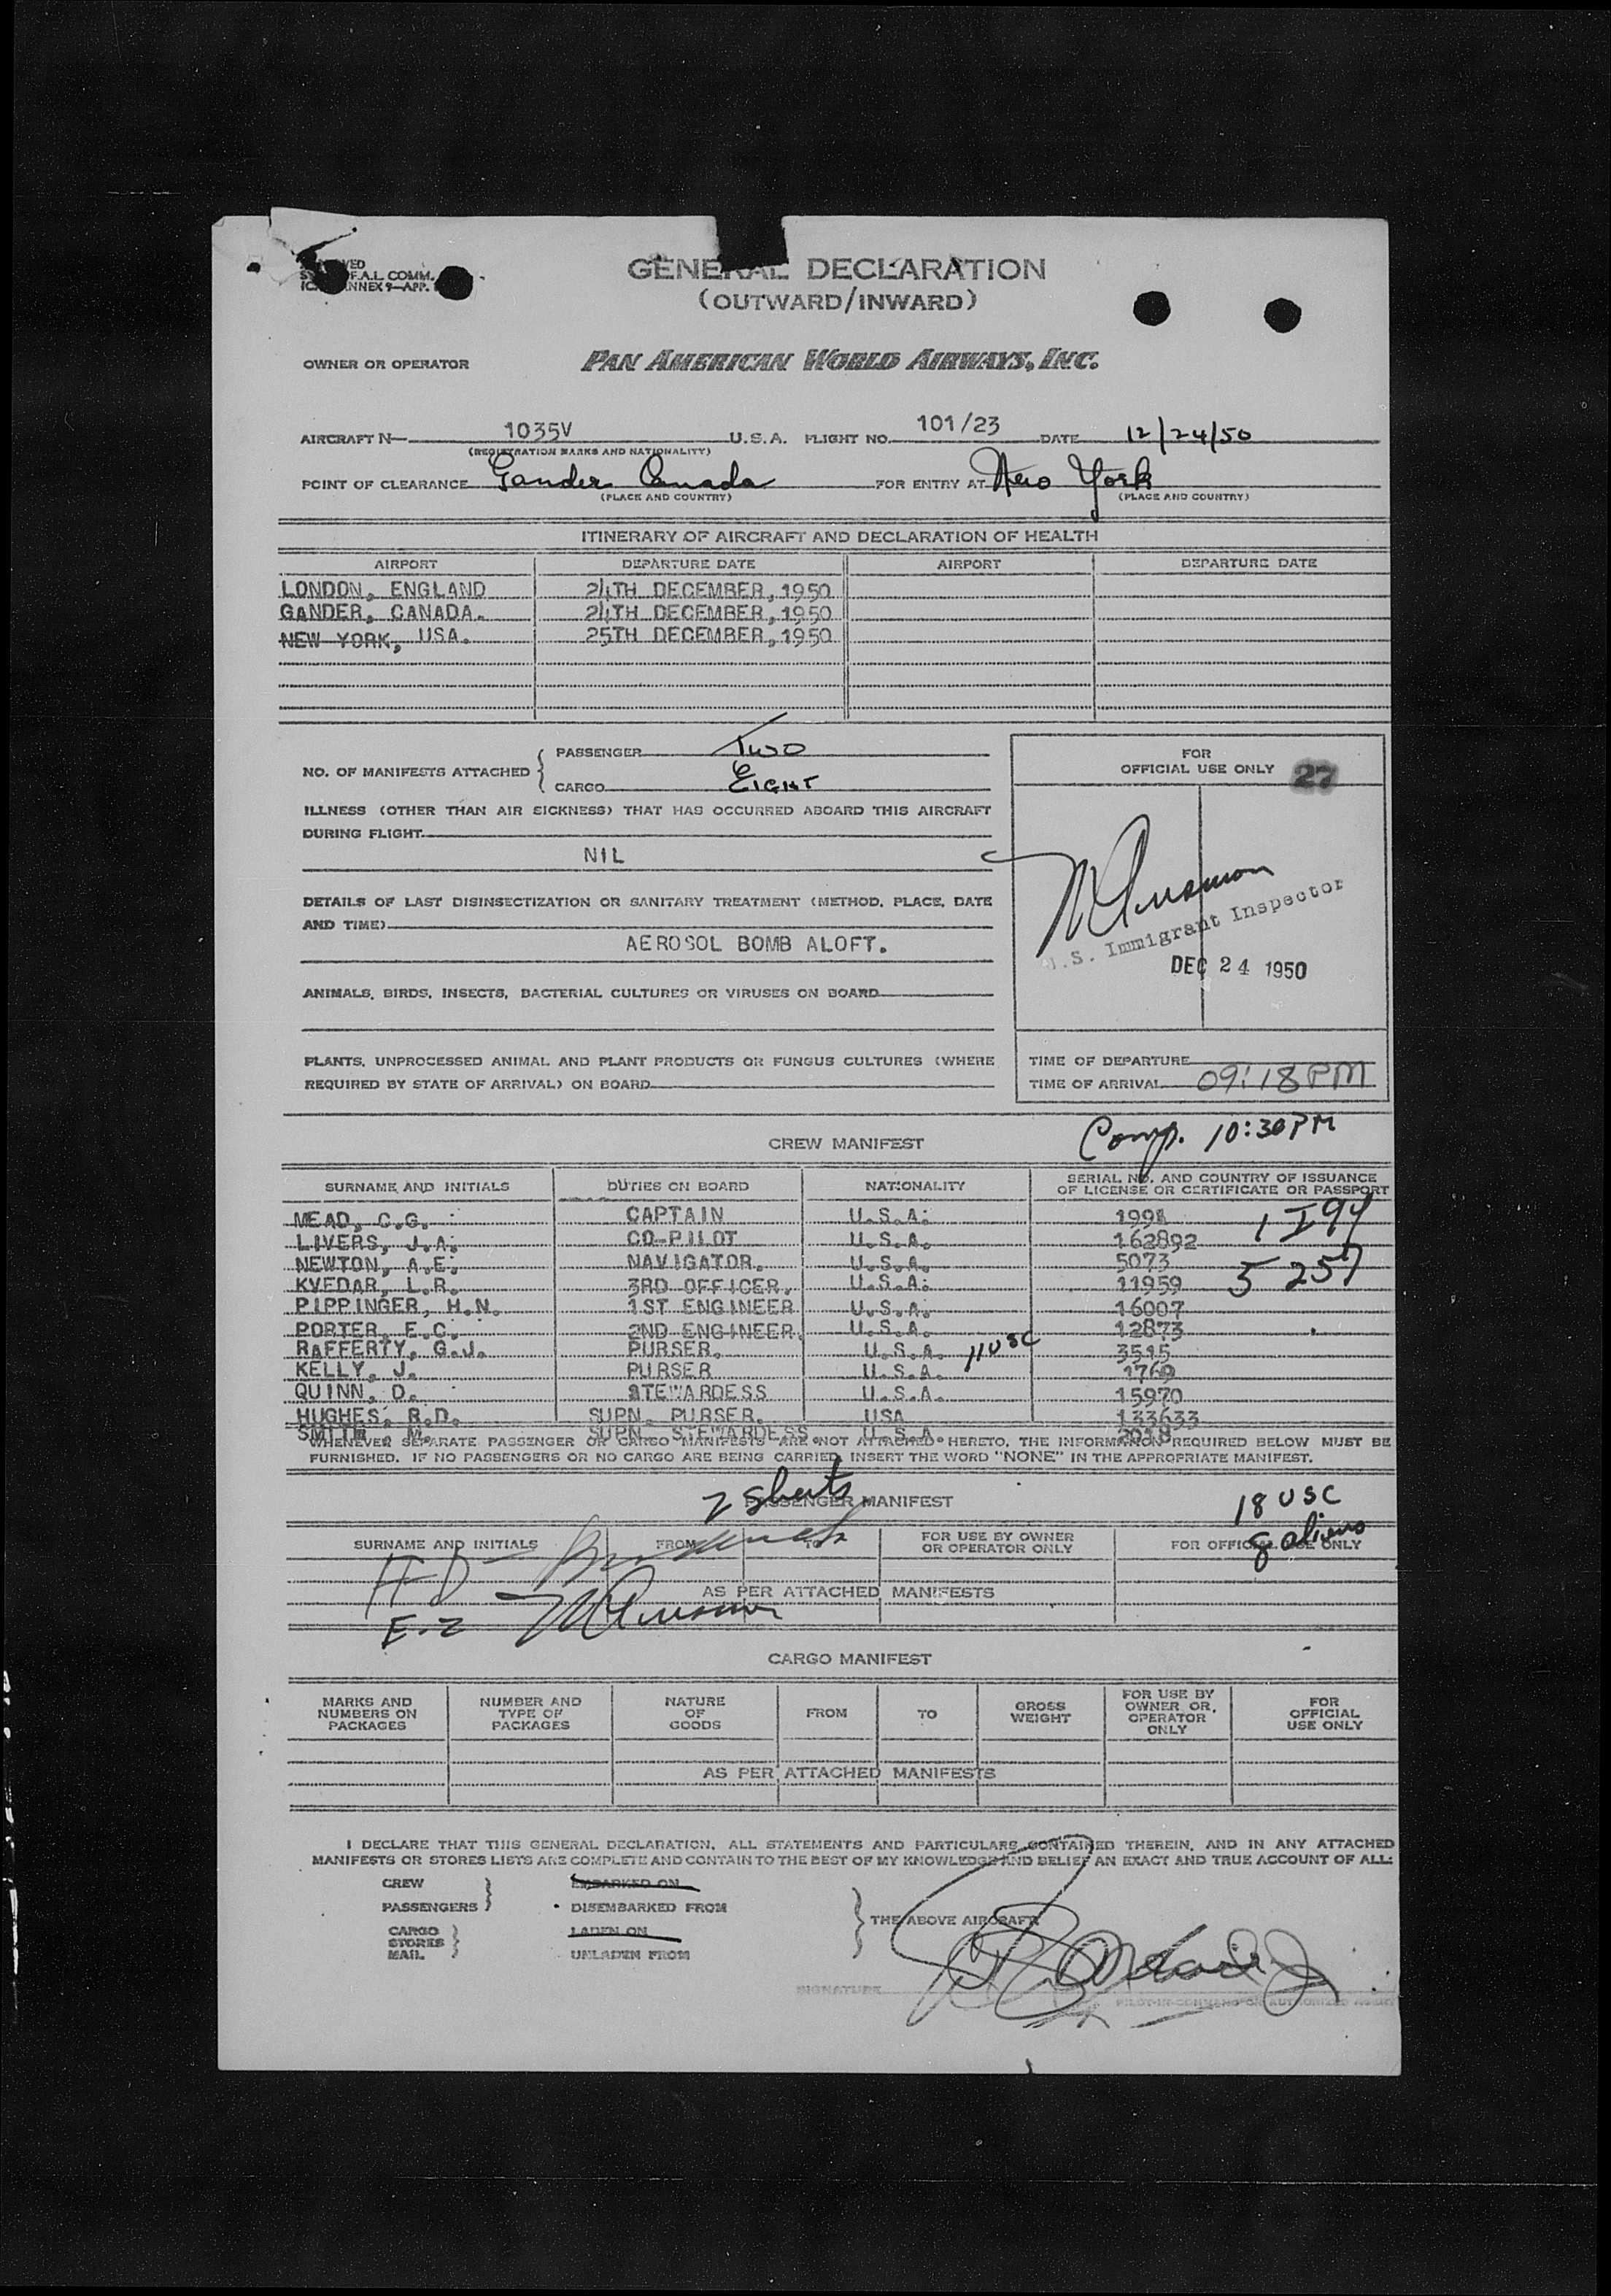 GENERAL DECLARATION
(OUTWARD/INWARD)
F.A.L. COMM.
ANNEX 9—APP.
OWNER OR OPERATOR PAN AMERICAN WORLD AIRWAYS, INC.
AIRCRAFT N— 1035V U.S.A. FLIGHT NO. 101/23 DATE 12/24/50
(REGISTRATION MARKS AND NATIONALITY)
POINT OF CLEARANCE Gander Canada FOR ENTRY AT New York
(PLACE AND COUNTRY) (PLACE AND COUNTRY)
ITINERARY OF AIRCRAFT AND DECLARATION OF HEALTH
AIRPORT DEPARTURE DATE AIRPORT DEPARTURE DATE
LONDON, ENGLAND 24TH DECEMBER, 1950
GANDER, CANADA. 24TH DECEMBER, 1950
NEW YORK, USA. 25TH DECEMBER, 1950
NO. OF MANIFESTS ATTACHED { PASSENGER Two
CARGO EIGHT
FOR
OFFICIAL USE ONLY 27
ILLNESS (OTHER THAN AIR SICKNESS) THAT HAS OCCURRED ABOARD THIS AIRCRAFT
DURING FLIGHT
NIL
DETAILS OF LAST DISINSECTIZATION OR SANITARY TREATMENT (METHOD, PLACE, DATE
AND TIME)
AEROSOL BOMB ALOFT.
U.S. Immigrant Inspector
DEC 24 1950
ANIMALS, BIRDS, INSECTS, BACTERIAL CULTURES OR VIRUSES ON BOARD
PLANTS, UNPROCESSED ANIMAL AND PLANT PRODUCTS OR FUNGUS CULTURES (WHERE
REQUIRED BY STATE OF ARRIVAL) ON BOARD
TIME OF DEPARTURE
TIME OF ARRIVAL 09:18 PM
Comp. 10:30 PM
CREW MANIFEST
SURNAME AND INITIALS DUTIES ON BOARD NATIONALITY SERIAL NO. AND COUNTRY OF ISSUANCE
OF LICENSE OR CERTIFICATE OR PASSPORT
MEAD, C.G. CAPTAIN U.S.A. 1991 1 I94
LIVERS, J.A. CO-PILOT U.S.A. 162892
NEWTON, A.E. NAVIGATOR. U.S.A. 5073 5 257
KVEDAR, L.R. 3RD OFFICER. U.S.A. 11959
PIPPINGER, H.N. 1ST ENGINEER U.S.A. 16007
PORTER, E.C. 2ND ENGINEER. U.S.A. 12873
RAFFERTY, G.J. PURSER. U.S.A. 11 USC 3515
KELLY, J. PURSER U.S.A. 1769
QUINN, D. STEWARDESS U.S.A. 15970
HUGHES, R.D. SUPN. PURSER. USA 133633
SMITH, M. SUPN. STEWARDESS. U.S.A. 2018
WHENEVER SEPARATE PASSENGER OR CARGO MANIFESTS ARE NOT ATTACHED HERETO, THE INFORMATION REQUIRED BELOW MUST BE
FURNISHED. IF NO PASSENGERS OR NO CARGO ARE BEING CARRIED, INSERT THE WORD "NONE" IN THE APPROPRIATE MANIFEST.
2 sheets
PASSENGER MANIFEST
18 USC
8 aliens
SURNAME AND INITIALS FROM TO FOR USE BY OWNER
OR OPERATOR ONLY FOR OFFICIAL USE ONLY
AS PER ATTACHED MANIFESTS
E-2
CARGO MANIFEST
MARKS AND
NUMBERS ON
PACKAGES NUMBER AND
TYPE OF
PACKAGES NATURE
OF
GOODS FROM TO GROSS
WEIGHT FOR USE BY
OWNER OR
OPERATOR
ONLY FOR
OFFICIAL
USE ONLY
AS PER ATTACHED MANIFESTS
I DECLARE THAT THIS GENERAL DECLARATION, ALL STATEMENTS AND PARTICULARS CONTAINED THEREIN, AND IN ANY ATTACHED
MANIFESTS OR STORES LISTS ARE COMPLETE AND CONTAIN TO THE BEST OF MY KNOWLEDGE AND BELIEF AN EXACT AND TRUE ACCOUNT OF ALL:
CREW EMBARKED ON
PASSENGERS DISEMBARKED FROM
THE ABOVE AIRCRAFT
CARGO LADEN ON
STORES
MAIL UNLADEN FROM
SIGNATURE
PILOT-IN-COMMAND OR AUTHORIZED AGENT